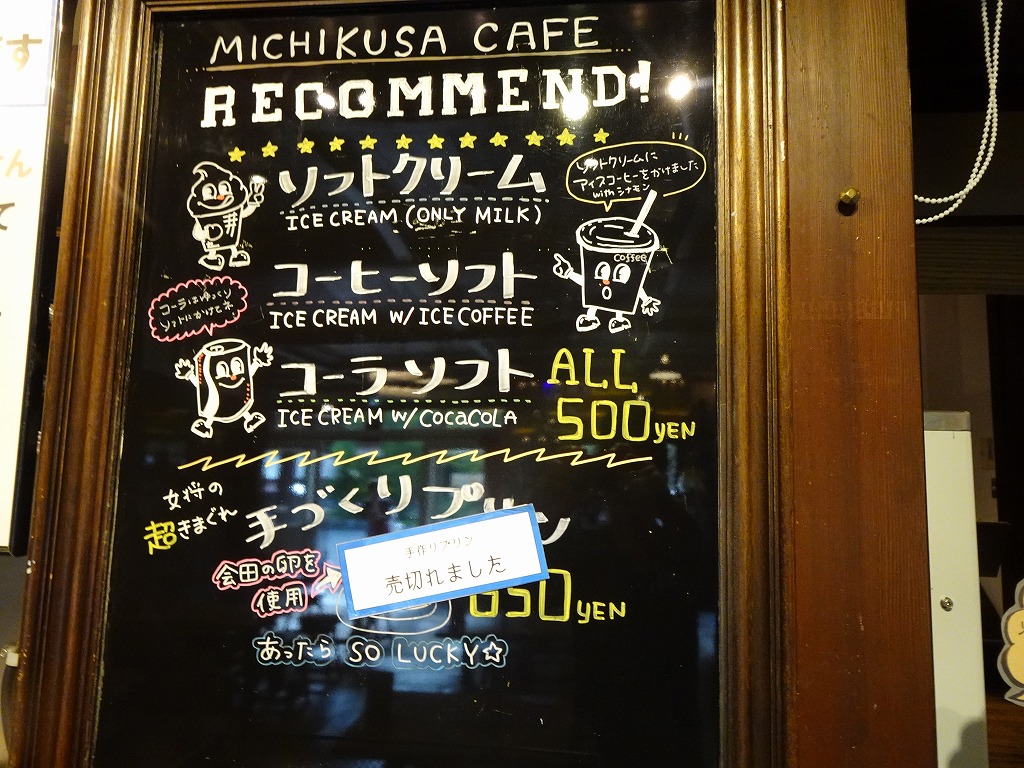 MICHIKUSA CAFE
RECOMMEND!
ソフトクリーム
ICE CREAM (ONLY MILK)
ソフトクリームに
アイスコーヒーをかけました
with シナモン
coffee
コーヒーソフト
ICE CREAM W/ ICE COFFEE
コーラはゆっくり
ソフトにかけてネ
コーラソフト
ICE CREAM W/ COCACOLA
ALL
500 YEN
女将の
超きまぐれ
手づくりプリン
手作りプリン
売切れました
会田の卵を
使用
650 YEN
あったら SO LUCKY☆